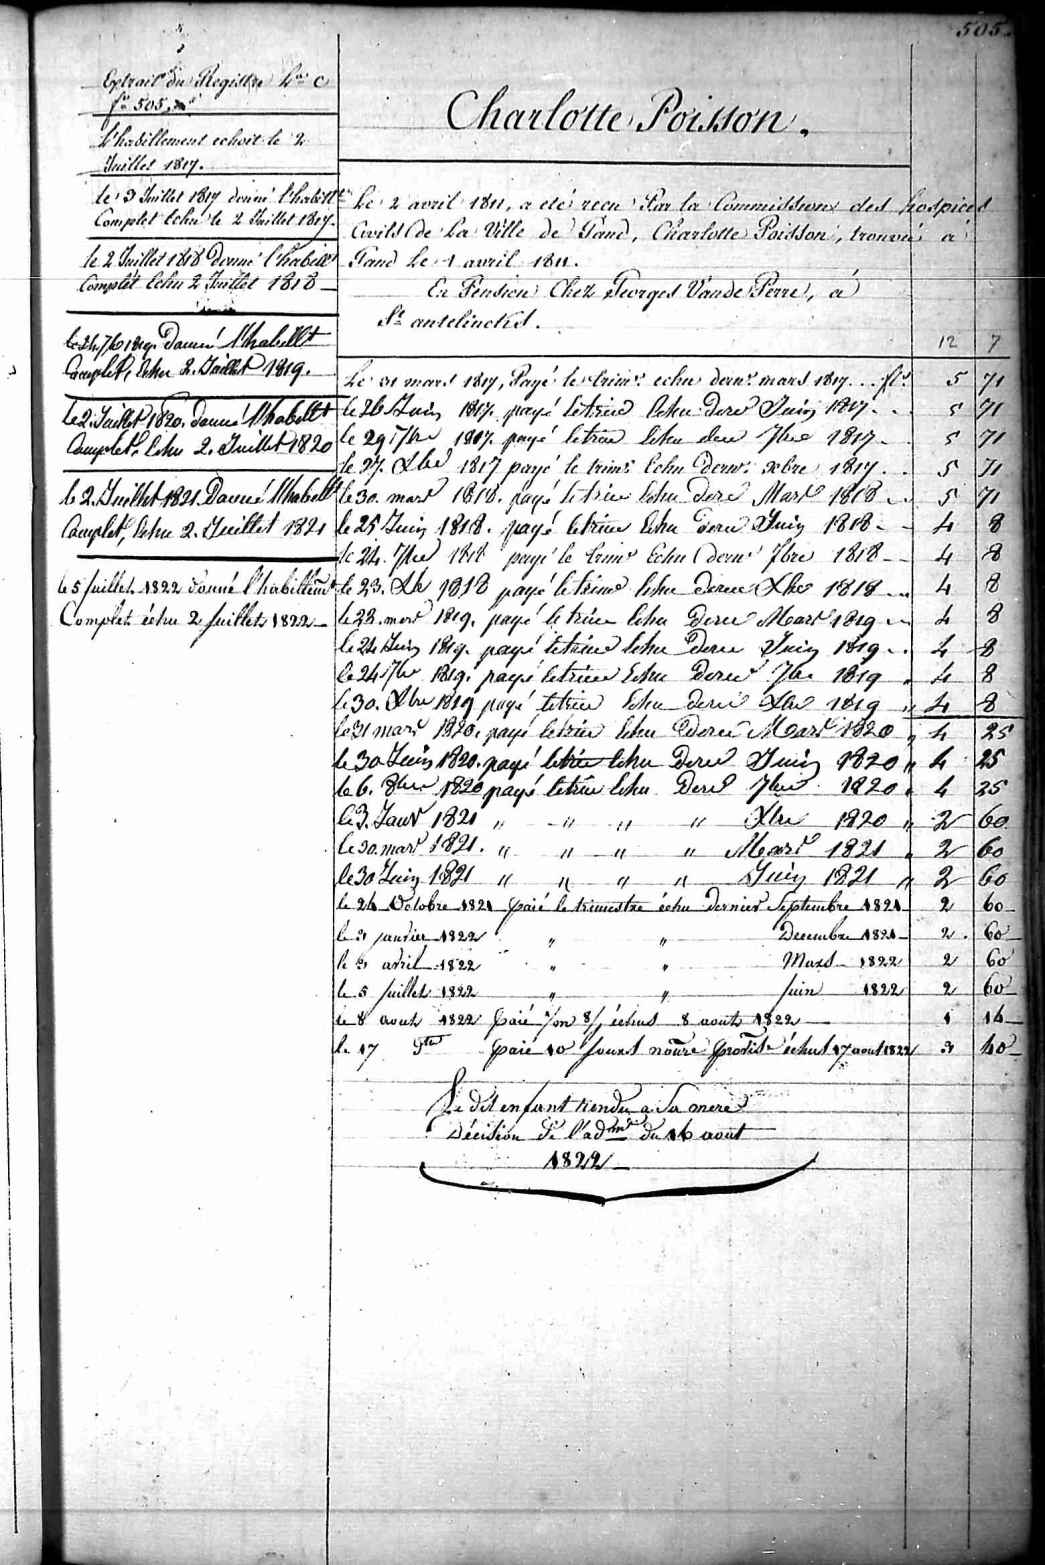 505.
Extrait du Registre Lre C
fo 505.
L'habillement echoit le 2
Juillet 1817.
le 3 Juillet 1817 donné l'habillt
Complet Echu le 2 Juillet 1817.
le 2 Juillet 1818 donné l'habillt
Complèt Echu 2 Juillet 1818
le 24 7bre 1819. Donné l'habillt
Complet, Echu 2. Juillet 1819.
le 2. Juillet 1820. donné l'habillt
Complet. Echu 2. Juillet 1820
le 2. Juillet 1821. Donné l'habillt
Complet, Echu 2. Juillet 1821
le 5 Juillet 1822 donné l'habillemt
Complet échu 2 Juillet 1822
Charlotte Poisson.
Le 2 avril 1811, a eté recu Par la Commission des hospices
Civils de La Ville de Gand, Charlotte Poisson, trouvée a
Gand Le 1 avril 1811.
En Pension Chez Georges Vande Perre, à
St antelinckx.
12 7
Le 31 mars 1817, Payé le trims echu dernr mars 1817 . . . fls 5 71
le 26 Juin 1817. payé le trim Echu derr Juin 1817 . . 5 71
le 29 7bre 1817. payé le trim Echu derr 7bre 1817 . . 5 71
le 27. Xbre 1817 payé le trims Echu dernr xbre 1817 . . 5 71
le 30. mars 1818. payé le trim Echu derr Mars 1818 . . 5 71
le 25 Juin 1818. payé le trim Echu derr Juin 1818 4 8
le 24. 7bre 1818 payé le trims Echu dernr 7bre 1818 4 8
le 23. Xbr 1818 payé le trim Echu derr Xbre 1818 4 8
le 23. mars 1819. payé le trim Echu derr Mars 1819 4 8
le 24 Juin 1819. payé le trim Echu Derr Juin 1819 4 8
le 24 7br 1819. payé le trim Echu Derr 7bre 1819 4 8
le 30. Xbre 1819 payé le trim Echu derr Xbre 1819 " 4 8
le 31 mars 1820. payé le trim Echu Derr Mars 1820 " 4 25
le 30 Juin 1820. payé le trim Echu Derr Juin 1820 " 4 25
le 6. 8bre 1820 payé le trim Echu Derr 7bre 1820 " 4 25
le 3. Janv 1821 " " " " Xbre 1820 " 2 60
le 30. mars 1821. " " " " Mars 1821 " 2 60
le 30 Juin 1821 " " " " Juin 1821 " 2 60
le 24 Octobre 1821 payé le trimestre échu dernier Septembre 1821 2 60
le 3 janvier 1822 " " Decembre 1821 2 . 60
le 3 avril 1822 " " Mars 1822 2 60
le 5 juillet 1822 " " juin 1822 2 60
le 8 aout 1822 paié échus 8 aout 1822 1 14
le 17 paié 10 jours échus 17 aout 1822 3 40
Le dit enfant rendu a Sa mere
Décision de l'admon du 16 aout
1822